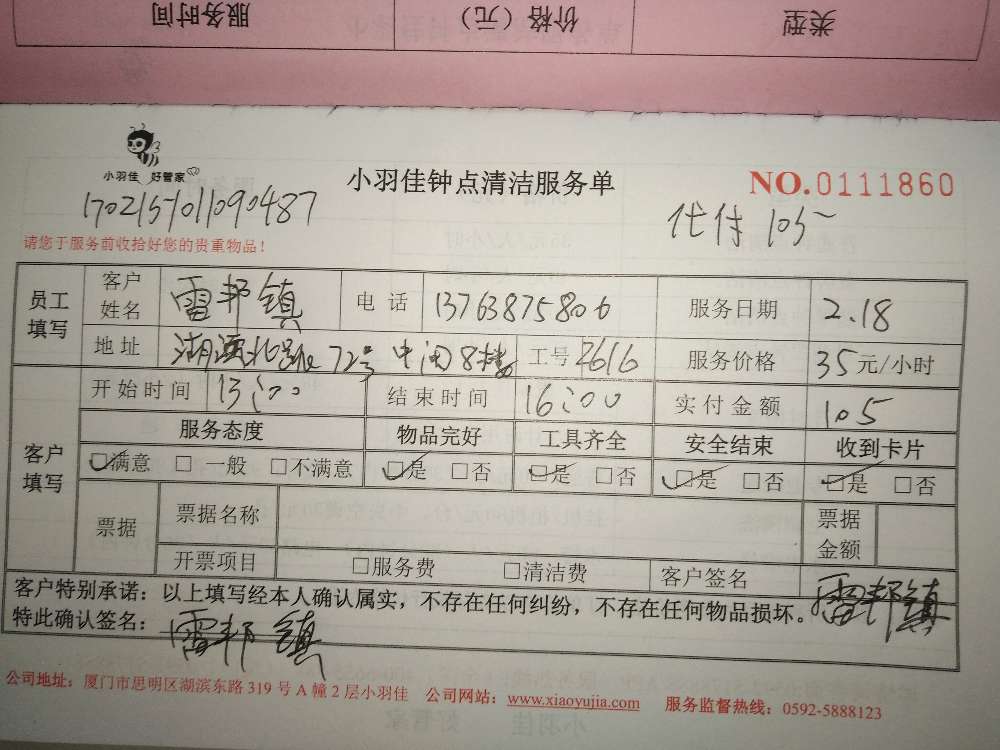 类型 价格（元） 服务时间
小羽佳 好管家
小羽佳钟点清洁服务单
NO.0111860
170215011090487
代付 105
请您于服务前收拾好您的贵重物品！
员工填写 客户姓名 雷邦镇 电话 13763875806 服务日期 2.18
地址 湖滨北路72号中闽8楼 工号 2616 服务价格 35元/小时
客户填写 开始时间 13:00 结束时间 16:00 实付金额 105
服务态度 物品完好 工具齐全 安全结束 收到卡片
☑满意 □一般 □不满意 ☑是 □否 ☑是 □否 ☑是 □否 ☑是 □否
票据 票据名称 票据金额
开票项目 □服务费 □清洁费 客户签名 雷邦镇
客户特别承诺：以上填写经本人确认属实，不存在任何纠纷，不存在任何物品损坏。
特此确认签名：雷邦镇
公司地址：厦门市思明区湖滨东路 319 号 A 幢 2 层小羽佳 公司网站：www.xiaoyujia.com 服务监督热线：0592-5888123